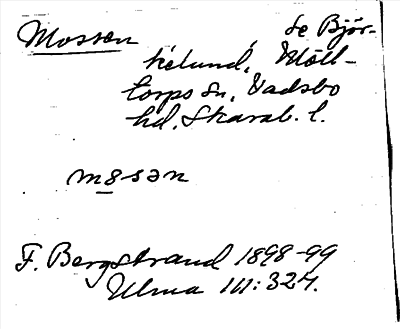 Mossen se Björ-
kelund, Mölltorps
sn, Vadsbo
hd. Skarab. l.
mosən
F. Bergstrand 1898-99
Ulma 111:327.